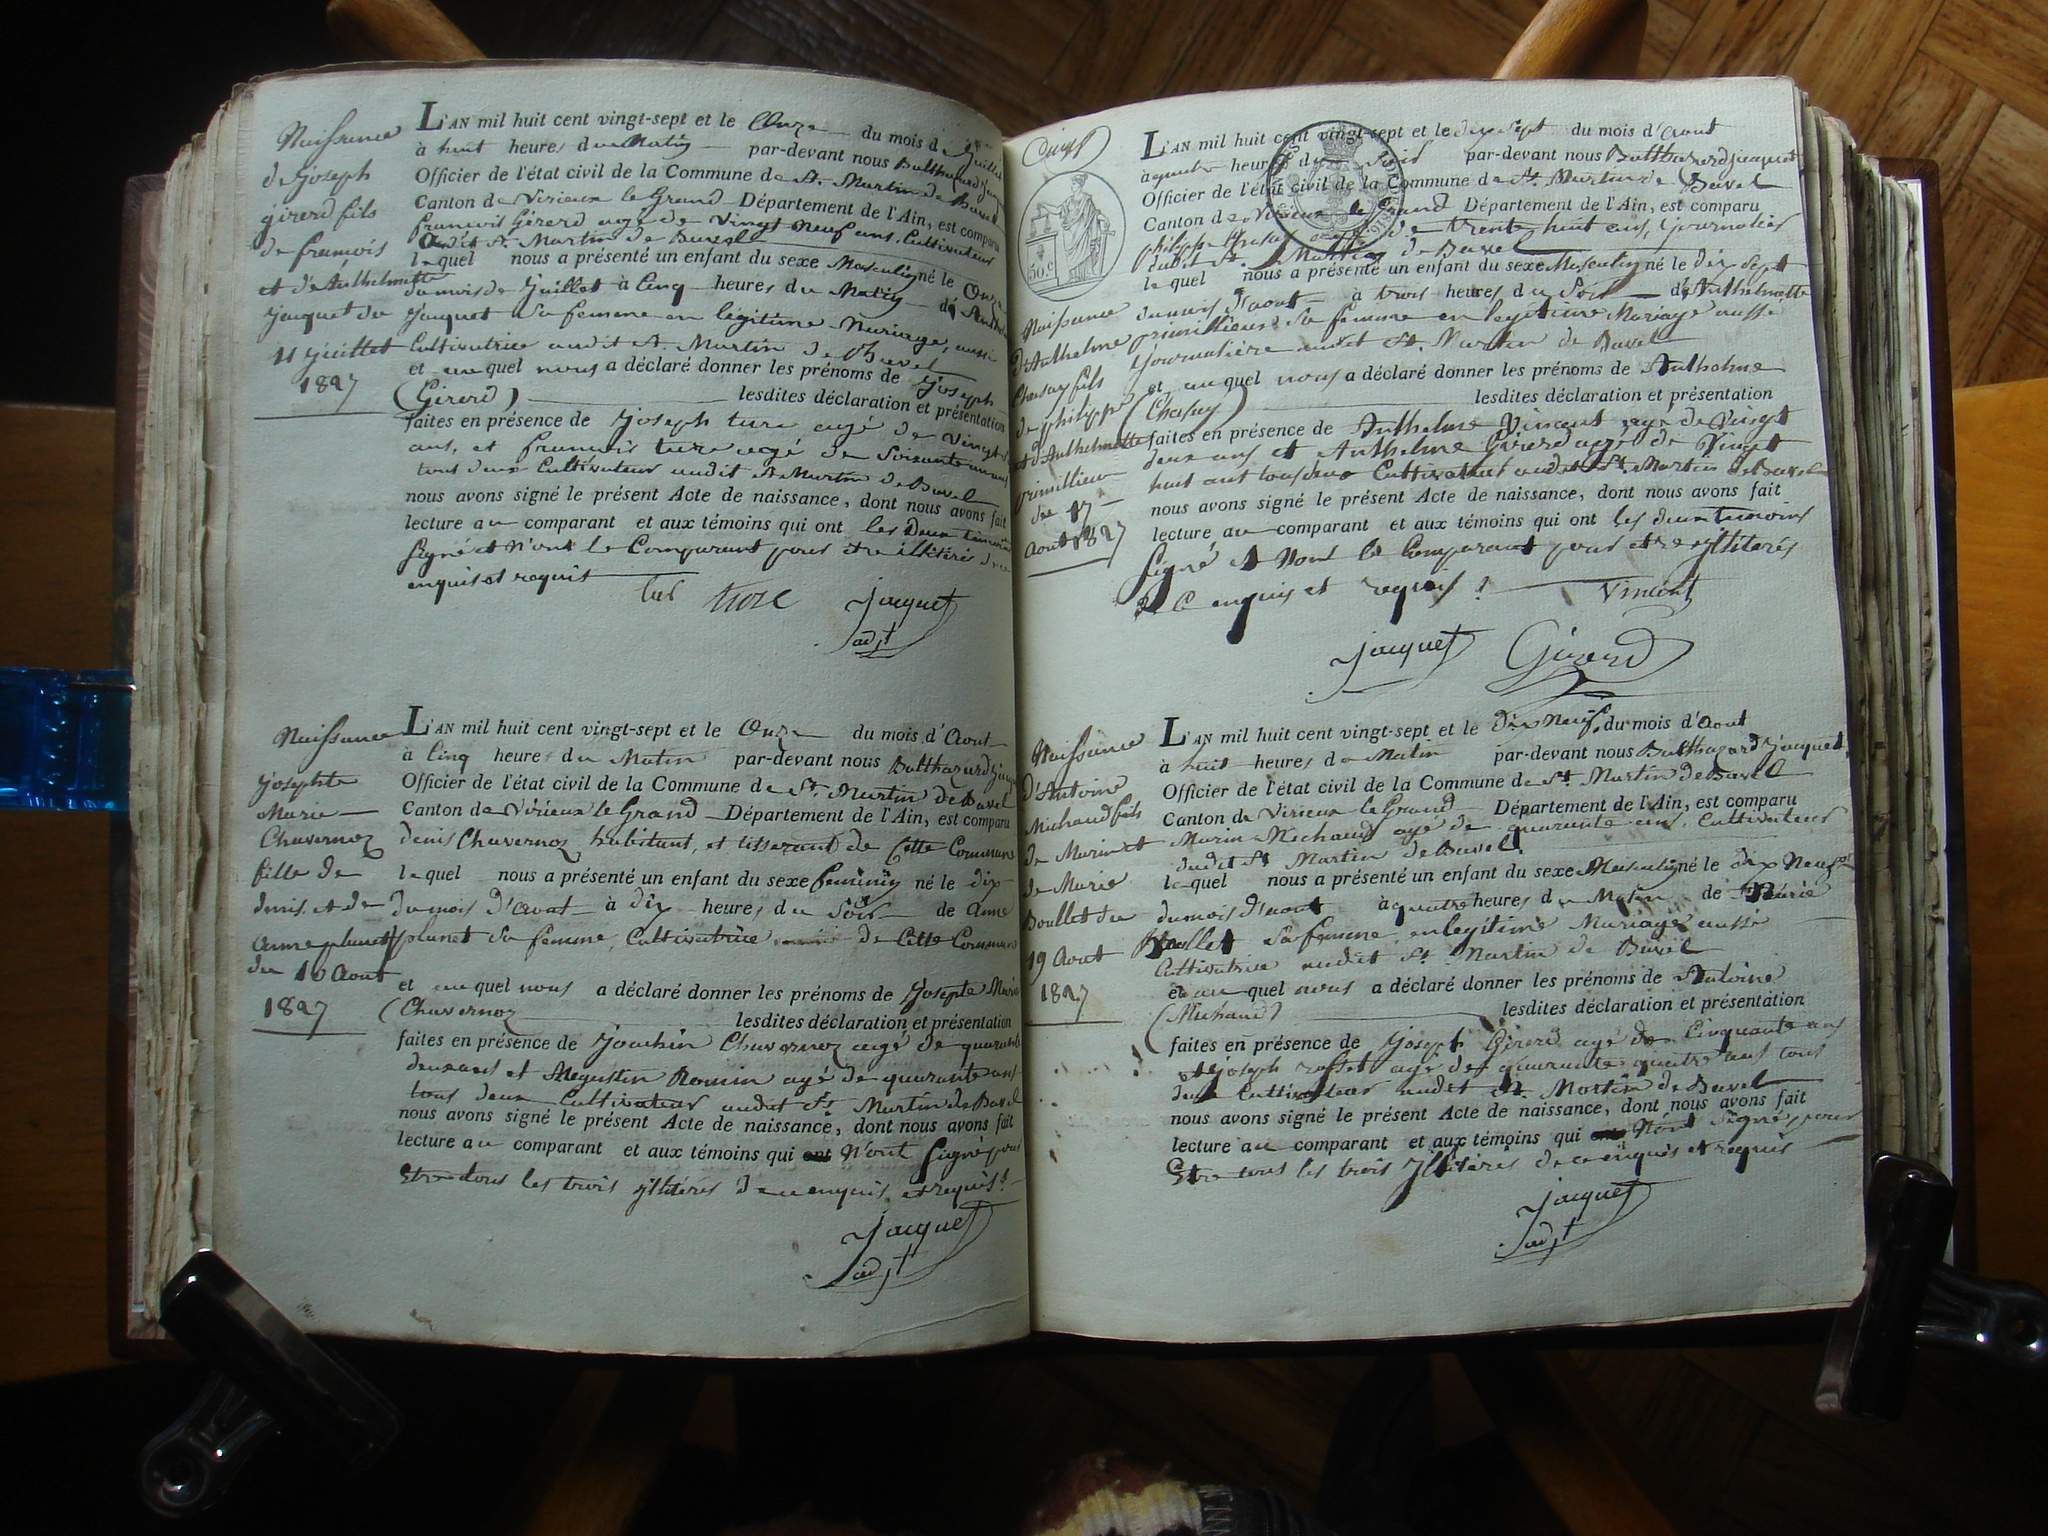 Naissance
de Joseph
girerd fils
de francois
et d'Anthelmette
jacquet du
11 juillet
1827
L'AN mil huit cent vingt-sept et le Onze du mois de Juillet
à huit heures du Matin par-devant nous Balthazard
Officier de l'état civil de la Commune de St. Martin de Bavel
Canton de Virieux le Grand Département de l'Ain, est comparu
francois Girerd agé de Vingt Neuf ans, Cultivateur
audit St. Martin de Bavel
lequel nous a présenté un enfant du sexe Masculin né le Onze
du mois de Juillet à Cinq heures du Matin d'
jacquet sa femme en légitime Mariage, aussi
Cultivatrice audit St. Martin de Bavel
et auquel nous a déclaré donner les prénoms de Joseph
(Girerd) lesdites déclaration et présentation
faites en présence de Joseph ture agé de Vingt
ans, et francois ture agé de Soixante
tout deux Cultivateur audit St Martin de Bavel
nous avons signé le présent Acte de naissance, dont nous avons fait
lecture au comparant et aux témoins qui ont les deux temoins
Signé et Non le Comparant pour être illitéré de ce
enquis et requit
jacquet
adjt
Naissance
josephte
Marie
Chavernoz
fille de
denis et de
anne plunet
du 10 Aout
1827
L'AN mil huit cent vingt-sept et le Onze du mois d'Aout
à Cinq heures du Matin par-devant nous Balthazard
Officier de l'état civil de la Commune de St. Martin de Bavel
Canton de Virieux le Grand Département de l'Ain, est comparu
denis Chavernoz habitant, et tisserand de Cette Commune
lequel nous a présenté un enfant du sexe feminin né le dix
du mois d'Aout à dix heures du Soir de Anne
plunet sa femme, Cultivatrice de Cette Commune
et auquel nous a déclaré donner les prénoms de Josephte Marie
(Chavernoz lesdites déclaration et présentation
faites en présence de Joachin Chavernoz agé de quarante
deux ans et Augustin Romin agé de quarante ans
tous deux Cultivateur audit St Martin de Bavel
nous avons signé le présent Acte de naissance, dont nous avons fait
lecture au comparant et aux témoins qui ont N'ont Signé pour
Etre tous les trois yllitérés de ce enquis et requis
jacquet
adjt
50 c
Naissance
d'Anthelme
Chasuy fils
de philippe
et d'Anthelmette
primillieu
du 17
Aout 1827
L'AN mil huit cent vingt-sept et le dix Sept du mois d'Aout
à quatre heures du Soir par-devant nous Balthazard jacquet
Officier de l'état civil de la Commune de St. Martin de Bavel
Canton de Virieux le Grand Département de l'Ain, est comparu
philippe Chasuy agé de trente huit ans, journalier
audit St. Martin de Bavel
lequel nous a présenté un enfant du sexe Masculin né le dix Sept
du mois d'aout à trois heures du Soir d'Anthelmette
primillieu sa femme en legitime Mariage aussi
Journalière audit St. Martin de Bavel
et auquel nous a déclaré donner les prénoms de Anthelme
(Chasuy) lesdites déclaration et présentation
faites en présence de Anthelme Vincent agé de Vingt
deux ans et Anthelme Girerd agé de Vingt
huit ans tous deux Cultivateur audit St. Martin de Bavel
nous avons signé le présent Acte de naissance, dont nous avons fait
lecture au comparant et aux témoins qui ont les deux temoins
Signé et Nont le Comparant pour etre yllitérés
de ce enquis et requis
Vincent
jacquet Girerd
Naissance
d'Antoine
Michaud fils
de Marin et
de Marie
Boullet du
19 Aout
1827
L'AN mil huit cent vingt-sept et le dix Neuf du mois d'Aout
à huit heures du Matin par-devant nous Balthazard jacquet
Officier de l'état civil de la Commune de St. Martin de Bavel
Canton de Virieux le Grand Département de l'Ain, est comparu
Marin Michaud agé de quarante ans, Cultivateur
dudit St Martin de Bavel
lequel nous a présenté un enfant du sexe Masculin né le dix Neuf
du mois d'aout à quatre heures du Matin de Marie
Boullet sa femme en legitime Mariage aussi
Cultivatrice audit St. Martin de Bavel
et auquel nous a déclaré donner les prénoms de Antoine
(Michaud) lesdites déclaration et présentation
faites en présence de Joseph Girerd agé de Cinquante ans
et joseph rosset agé de quarante quatre ans tout
deux Cultivateur audit St. Martin de Bavel
nous avons signé le présent Acte de naissance, dont nous avons fait
lecture au comparant et aux témoins qui ont N'ont Signé pour
Etre tous les trois Yllitérés de ce enquis et requis
jacquet
adjt